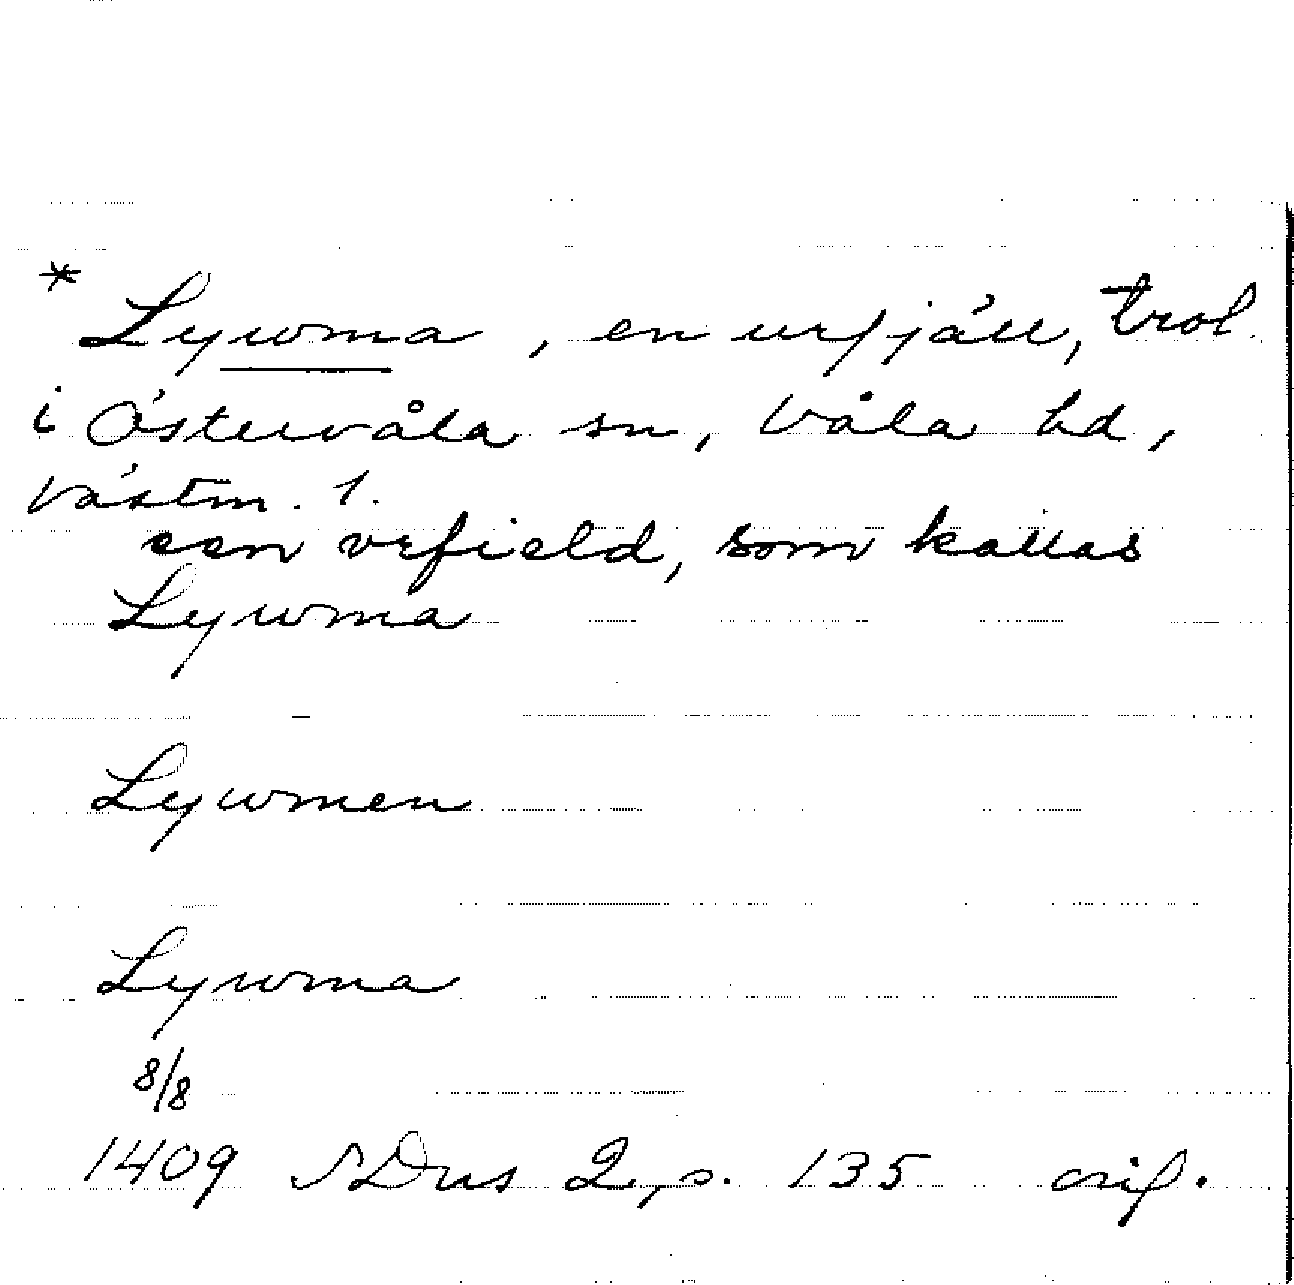 * Lywma, en urfjäll, trol.
i Östervåla sn, Våla hd,
Västm. l.
een vrfield, som kallas
Lywma
Lywmen
Lywma
8/8
1409 SDns 2, s. 135 orig.